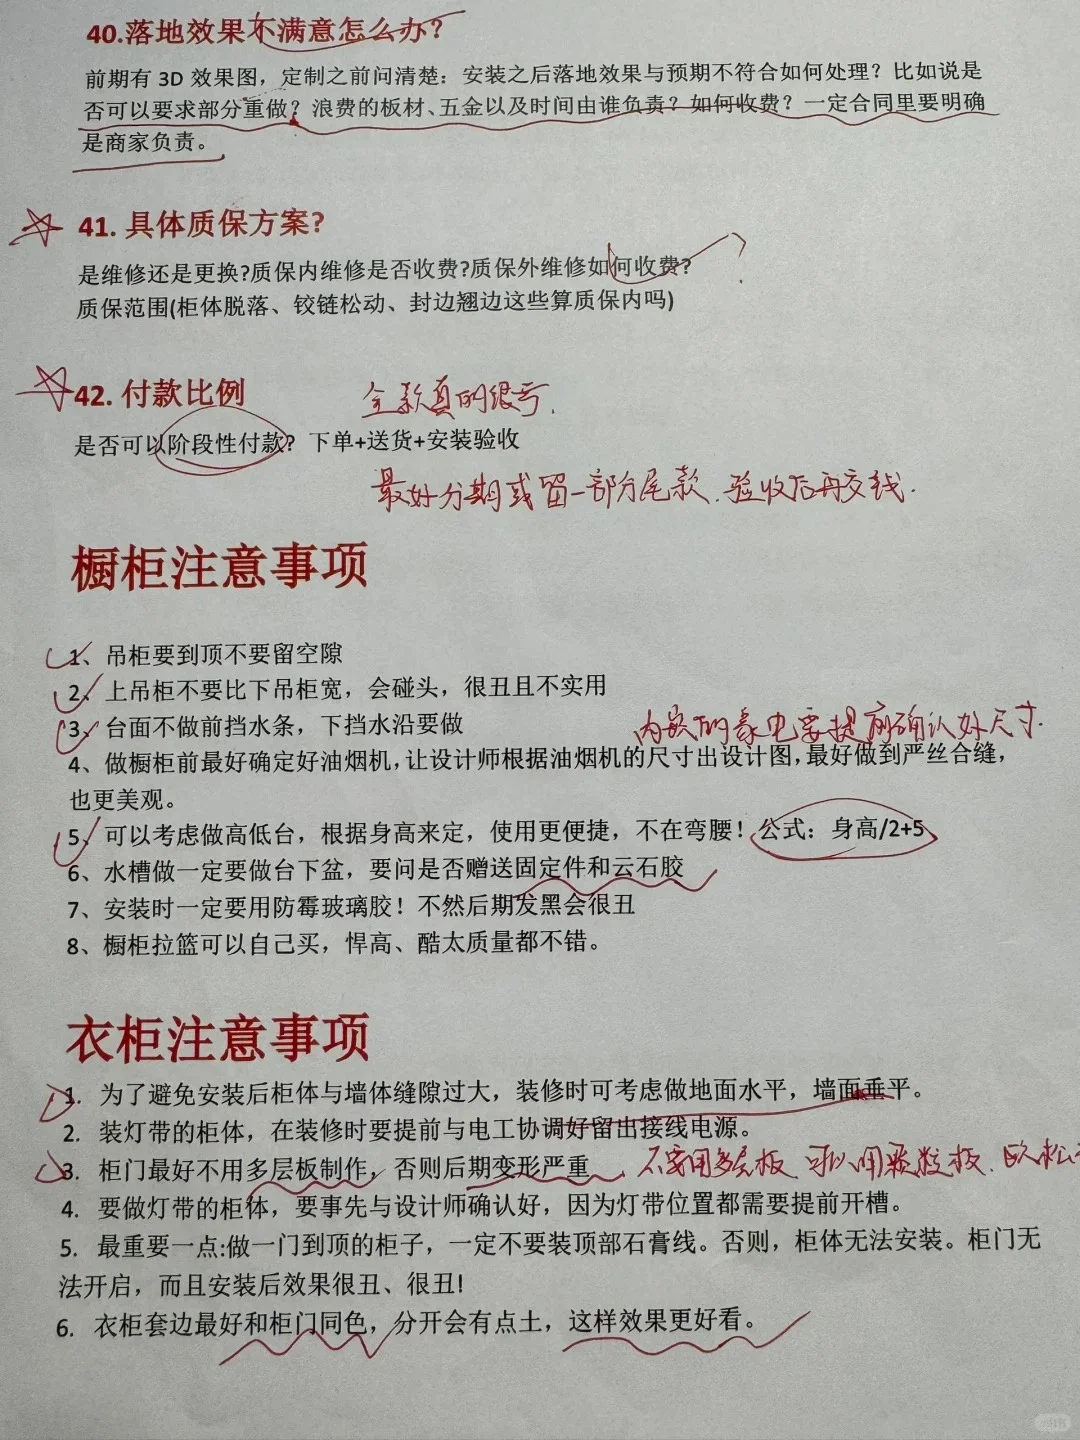 40.落地效果不满意怎么办？
前期有 3D 效果图，定制之前问清楚：安装之后落地效果与预期不符合如何处理？比如说是
否可以要求部分重做？浪费的板材、五金以及时间由谁负责？如何收费？一定合同里要明确
是商家负责。
41. 具体质保方案?
是维修还是更换?质保内维修是否收费?质保外维修如何收费?
?
质保范围(柜体脱落、铰链松动、封边翘边这些算质保内吗)
42. 付款比例
全款真的很亏.
是否可以阶段性付款？下单+送货+安装验收
最好分期或留一部分尾款.验收后再交钱.
橱柜注意事项
1、吊柜要到顶不要留空隙
2、上吊柜不要比下吊柜宽，会碰头，很丑且不实用
3、台面不做前挡水条，下挡水沿要做
内嵌的家电要提前确认好尺寸.
4、做橱柜前最好确定好油烟机,让设计师根据油烟机的尺寸出设计图,最好做到严丝合缝，
也更美观。
5、可以考虑做高低台，根据身高来定，使用更便捷，不在弯腰！公式：身高/2+5
6、水槽做一定要做台下盆，要问是否赠送固定件和云石胶
7、安装时一定要用防霉玻璃胶！不然后期发黑会很丑
8、橱柜拉篮可以自己买，悍高、酷太质量都不错。
衣柜注意事项
1. 为了避免安装后柜体与墙体缝隙过大，装修时可考虑做地面水平，墙面垂平。
2. 装灯带的柜体，在装修时要提前与电工协调好留出接线电源。
3. 柜门最好不用多层板制作，否则后期变形严重
不要用多层板、可以用颗粒板、欧松
4. 要做灯带的柜体，要事先与设计师确认好，因为灯带位置都需要提前开槽。
5. 最重要一点:做一门到顶的柜子，一定不要装顶部石膏线。否则，柜体无法安装。柜门无
法开启，而且安装后效果很丑、很丑!
6. 衣柜套边最好和柜门同色，分开会有点土，这样效果更好看。
小红书